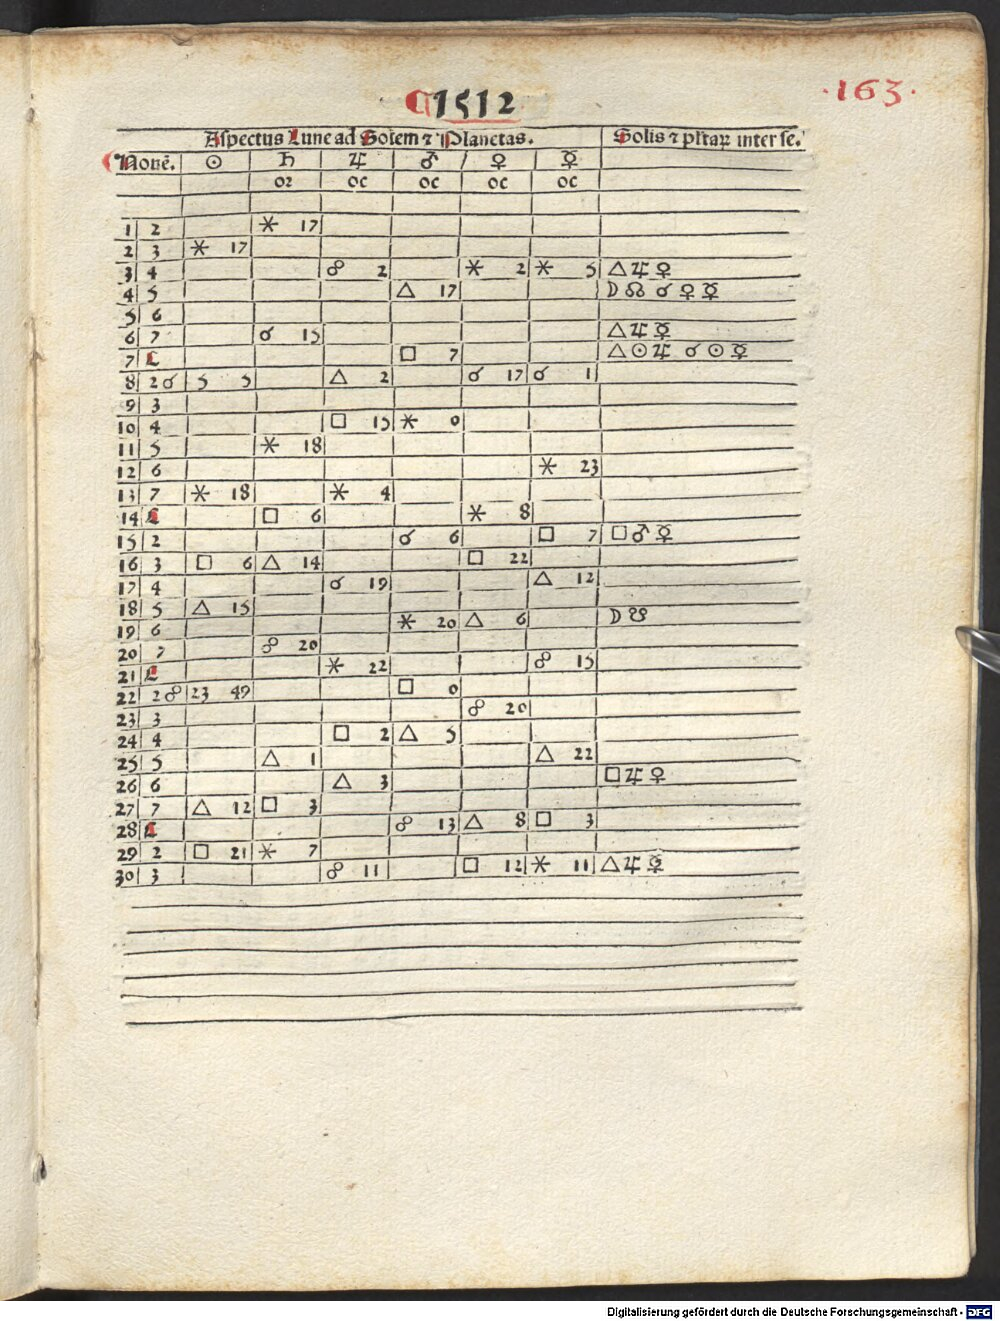 1512
·163·
Aspectus Lune ad Solem ⁊ Planetas. Solis ⁊ pltaꝝ inter se.
Nouē. ☉ ♄ ♃ ♂ ♀ ☿
oz oc oc oc oc
1 2 ⚹ 17
2 3 ⚹ 17
3 4 ☍ 2 ⚹ 2 ⚹ 5 △ ♃ ♀
4 5 △ 17 ☽ ☊ ☌ ♀ ☿
5 6
6 7 ☌ 15 △ ♃ ☿
7 □ 7 △ ☉ ♃ ☌ ☉ ☿
8 2 ☌ 5 5 △ 2 ☌ 17 ☌ 1
9 3
10 4 □ 15 ⚹ 0
11 5 ⚹ 18
12 6 ⚹ 23
13 7 ⚹ 18 ⚹ 4
14 □ 6 ⚹ 8
15 2 ☌ 6 □ 7 □ ♂ ☿
16 3 □ 6 △ 14 □ 22
17 4 ☌ 19 △ 12
18 5 △ 15
19 6 ⚹ 20 △ 6 ☽ ☋
20 7 ☍ 20
21 ⚹ 22 ☍ 15
22 2 ☍ 23 49 □ 0
23 3 ☍ 20
24 4 □ 2 △ 5
25 5 △ 1 △ 22
26 6 △ 3 □ ♃ ♀
27 7 △ 12 □ 3
28 ☍ 13 △ 8 □ 3
29 2 □ 21 ⚹ 7
30 3 ☍ 11 □ 12 ⚹ 11 △ ♃ ☿
Digitalisierung gefördert durch die Deutsche Forschungsgemeinschaft - DFG